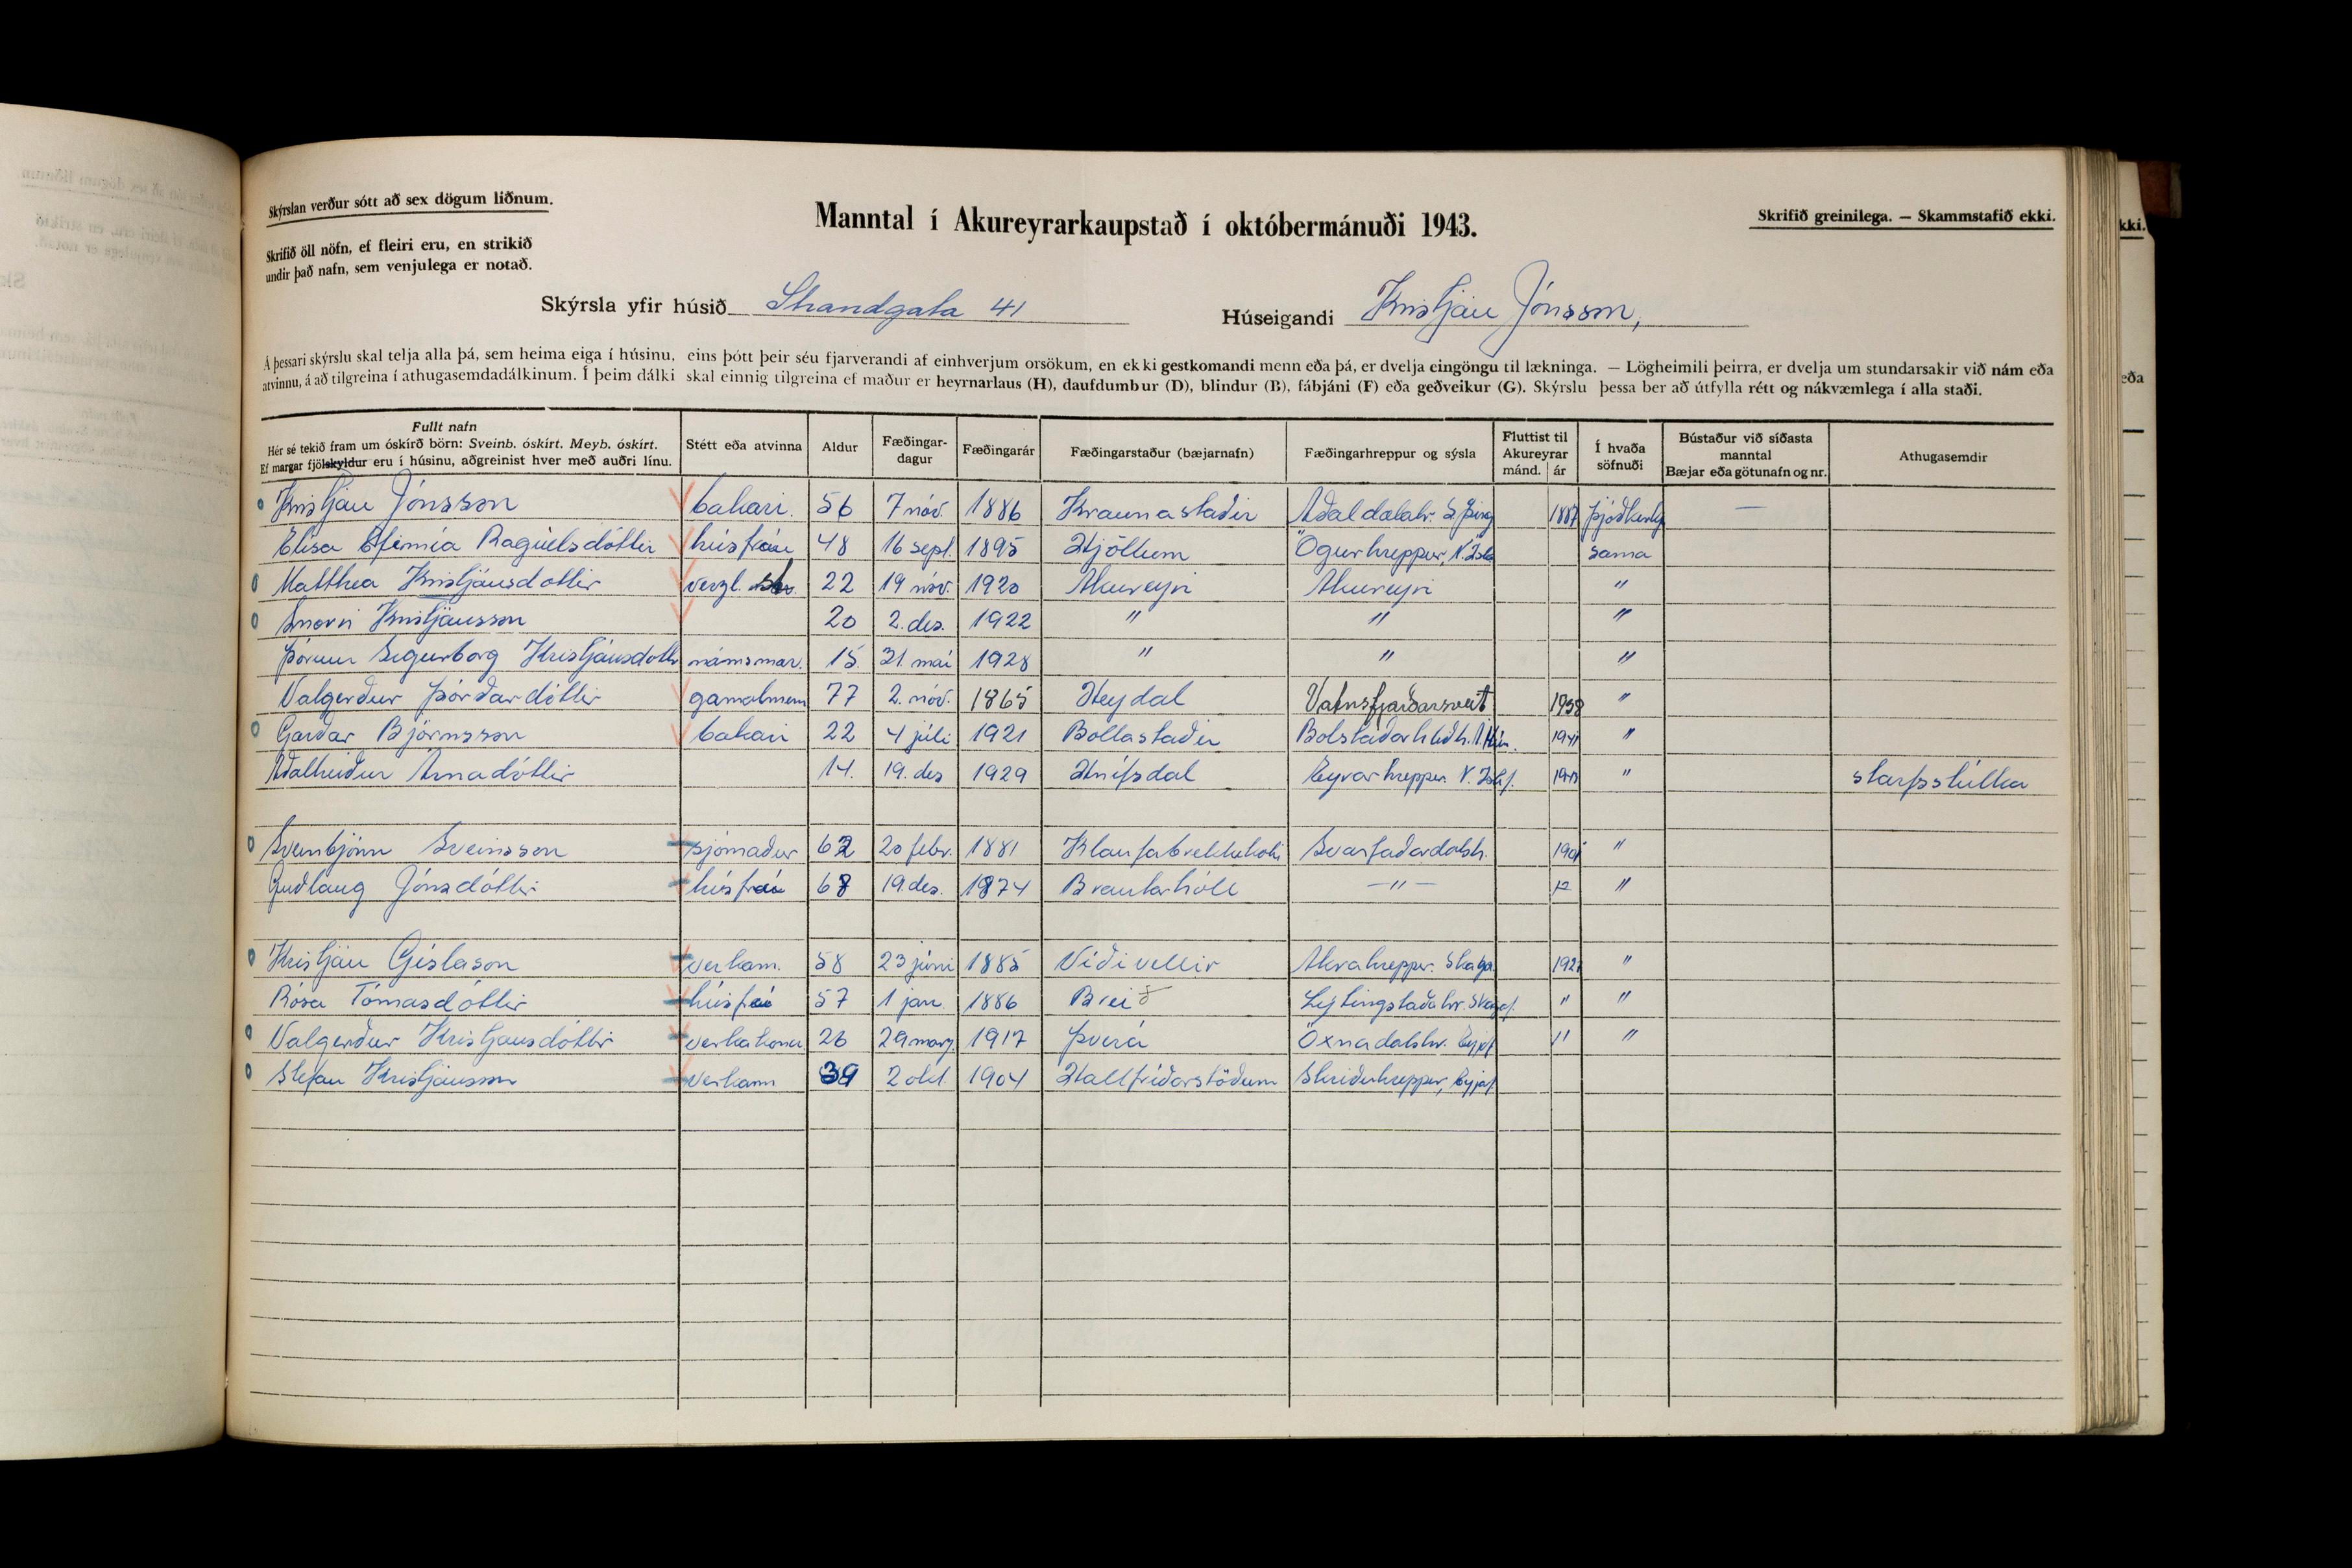 Skýrslan verður sótt að sex dögum liðnum.
Skrifið öll nöfn, ef fleiri eru, en strikið
undir það nafn, sem venjulega er notað.
Manntal í Akureyrarkaupstað í októbermánuði 1943.
Skrifið greinilega. — Skammstafið ekki.
Skýrsla yfir húsið Strandgata 41 Húseigandi Kristján Jónsson,
Á þessari skýrslu skal telja alla þá, sem heima eiga í húsinu, eins þótt þeir séu fjarverandi af einhverjum orsökum, en ekki gestkomandi menn eða þá, er dvelja eingöngu til lækninga. — Lögheimili þeirra, er dvelja um stundarsakir við nám eða
atvinnu, á að tilgreina í athugasemdadálkinum. Í þeim dálki skal einnig tilgreina ef maður er heyrnarlaus (H), daufdumbur (D), blindur (B), fábjáni (F) eða geðveikur (G). Skýrslu þessa ber að útfylla rétt og nákvæmlega í alla staði.
Fullt nafn
Hér sé tekið fram um óskírð börn: Sveinb. óskírt. Meyb. óskírt.
Ef margar fjölskyldur eru í húsinu, aðgreinist hver með auðri línu.
Stétt eða atvinna
Aldur
Fæðingar-
dagur
Fæðingarár
Fæðingarstaður (bæjarnafn)
Fæðingarhreppur og sýsla
Fluttist til
Akureyrar
mánd. ár
Í hvaða
söfnuði
Bústaður við síðasta
manntal
Bæjar eða götunafn og nr.
Athugasemdir
Kristján Jónsson bakari. 56 7 nóv. 1886 Kraunastaðir Aðaldalahr. S. Þing 1887 þjóðkirkj —
Elísa Efimía Ragúelsdóttir húsfrú 48 16 sept. 1895 Hjöllum Ögurhreppur, N. Ísa sama
Matthea Kristjánsdóttir verzl. 22 19 nóv. 1920 Akureyri Akureyri "
Snorri Kristjánsson 20 2. des. 1922 " " "
Þórunn Sigurborg Kristjánsdóttir námsmær. 15. 31 maí 1928 " " "
Valgerður Þórðardóttir gamalmenn 77 2. nóv. 1865 Heydal Vatnsfjarðarsveit 1938 "
Garðar Björnsson bakari 22 4 júlí 1921 Bollastaðir Bolstaðarhlíðh. A. Hún. 1941 "
Aðalheiður Árnadóttir 14. 19. des 1929 Hnífsdal Eyrarhreppur. N. Ísaf. "  starfsstúlka
Sveinbjörn Sveinsson sjómaður 62 20 febr. 1881 Klaufabrekkukoti Svarfaðardalsh. "
Guðlaug Jónsdóttir húsfrú 68 19. des. 1874 Brautarhóll —"— "
Kristján Gíslason verkam. 58 23 júní 1885 Víðivellir Akrahreppur. Skaga. "
Rósa Tómasdóttir húsfrú 57 1 jan. 1886 Breið Lýtingstaðahr. Skagaf. " "
Valgerður Kristjánsdóttir verkakona 26 29 marz. 1917 Þverá Öxnadalshr. Eyjaf " "
Stefán Kristjánsson verkam 39 2 okt 1904 Hallfríðarstöðum Skriðuhreppur, Eyjaf.
kki.
eða